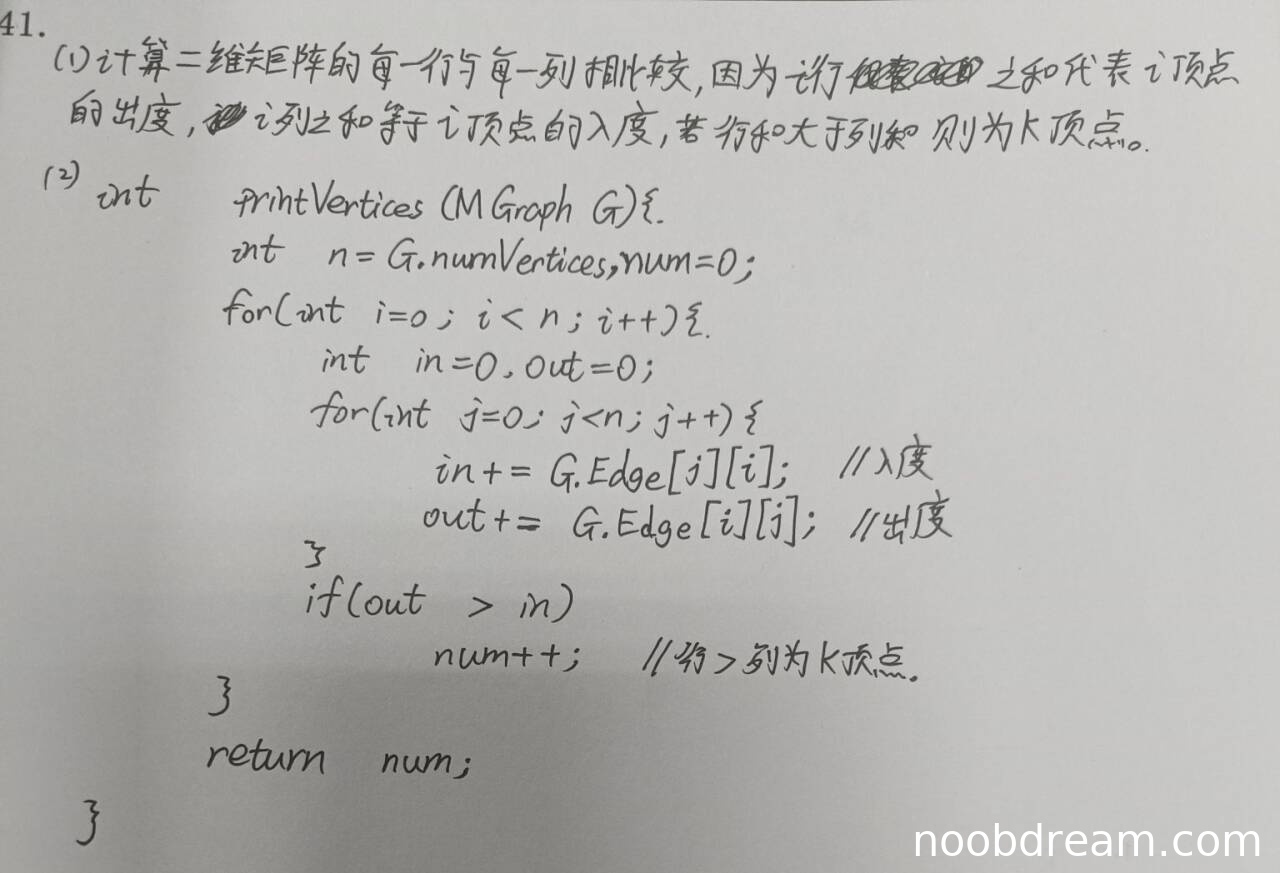 41.
(1)计算二维矩阵的每一行与每一列相比较,因为i行 之和代表i顶点
的出度, i列之和等于i顶点的入度,若行和大于列和 则为K顶点。
(2) int printVertices (MGraph G){
int n=G.numVertices,num=0;
for(int i=0; i<n; i++){
int in=0,out=0;
for(int j=0; j<n; j++){
in+= G.Edge[j][i]; //入度
out+= G.Edge[i][j]; //出度
}
if(out > in)
num++; //行>列为K顶点.
}
return num;
}
noobdream.com